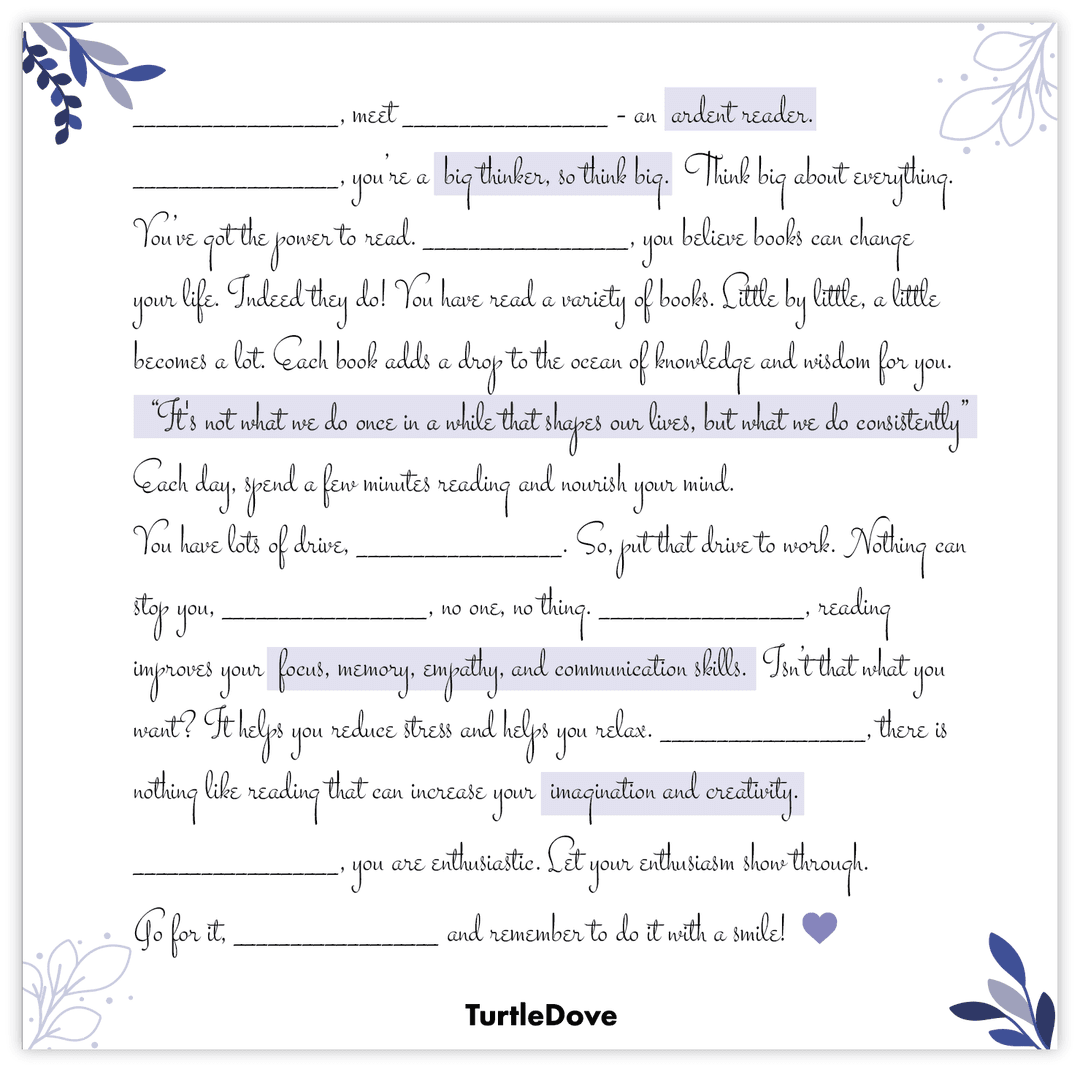 __________________, meet __________________ - an ardent reader.
__________________, you're a big thinker, so think big. Think big about everything.
You've got the power to read. __________________, you believe books can change
your life. Indeed they do! You have read a variety of books. Little by little, a little
becomes a lot. Each book adds a drop to the ocean of knowledge and wisdom for you.
“It's not what we do once in a while that shapes our lives, but what we do consistently”
Each day, spend a few minutes reading and nourish your mind.
You have lots of drive, __________________. So, put that drive to work. Nothing can
stop you, __________________, no one, no thing. __________________, reading
improves your focus, memory, empathy, and communication skills. Isn't that what you
want? It helps you reduce stress and helps you relax. __________________, there is
nothing like reading that can increase your imagination and creativity.
__________________, you are enthusiastic. Let your enthusiasm show through.
Go for it, __________________ and remember to do it with a smile!
TurtleDove